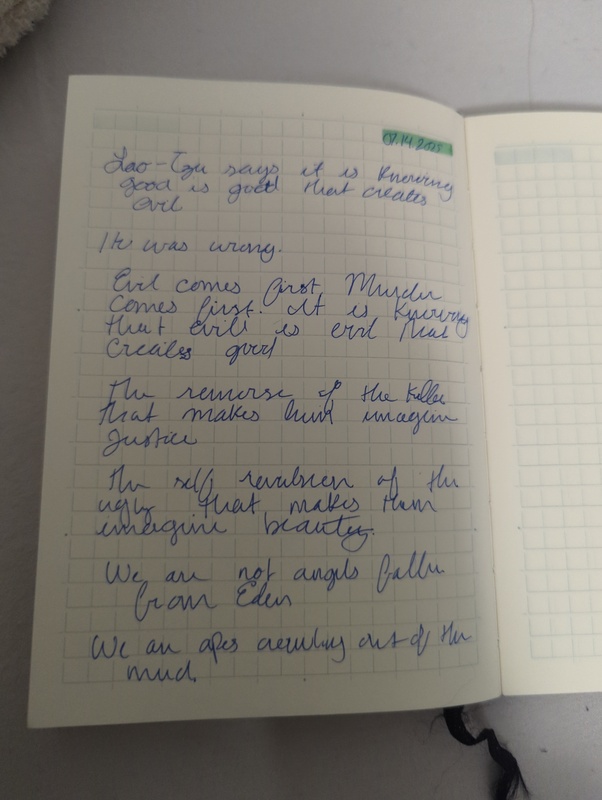 07.14.2025
Lao-Tzu says it is knowing
good is good that creates
evil
He was wrong.
Evil comes first. Murder
comes first. It is knowing
that evil is evil that
creates good
The remorse of the killer
that makes him imagine
justice
The self revulsion of the
ugly that makes them
imagine beauty.
We are not angels fallen
from Eden
We are apes crawling out of the
mud.